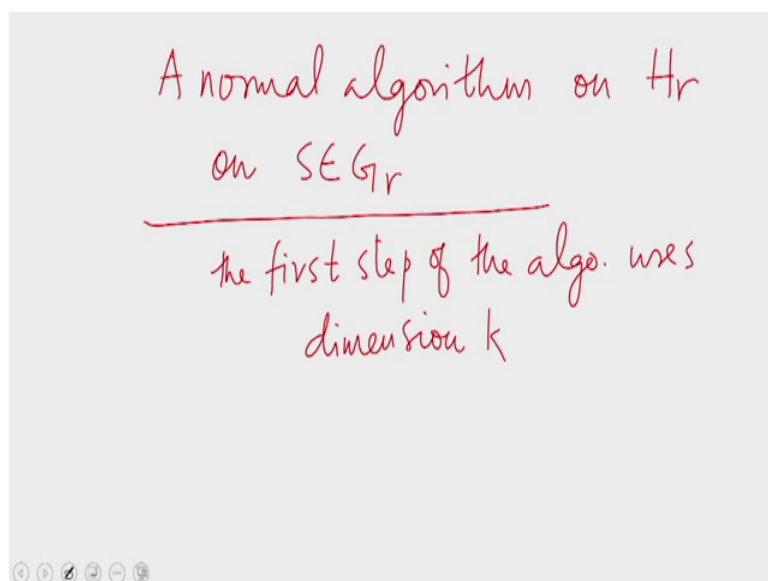 A normal algorithm on Hr
on SEGr
the first step of the algo. uses
dimension k